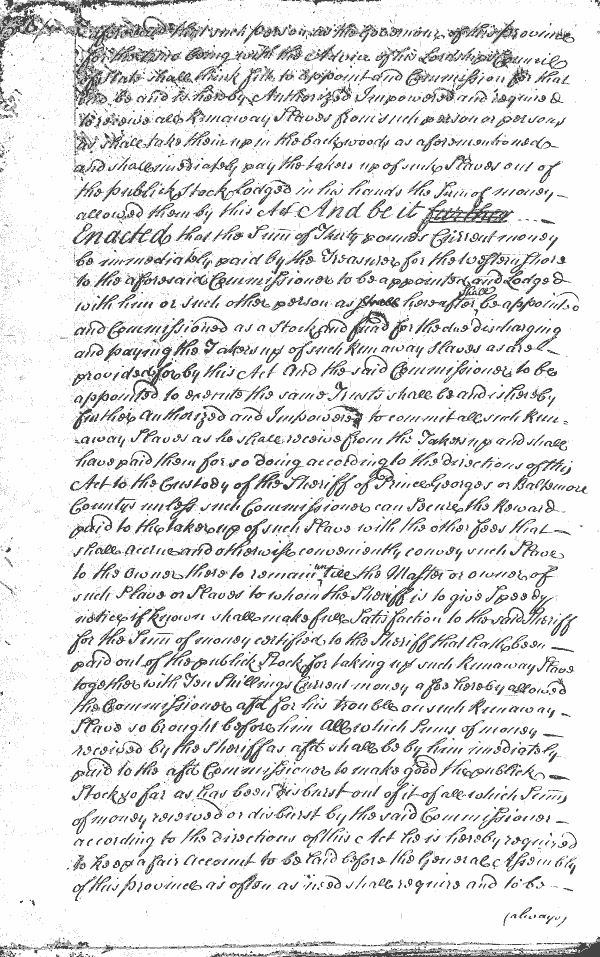 aforesaid that such person as the Governour of this Province
for the time being with the Advice of his Lordships Council
of State shall think fitt to appoint and Commission for that
End be and is hereby Authorized Impowered and required
to receive all Runaway Slaves from such person or persons
as shall take them up in the back woods as aforementioned
and shall imediately pay the takers up of such Slaves out of
the publick Stock Lodged in his hands the Sum of money
allowed them by this Act And be it further
Enacted that the Sum̃ of Thirty pounds Current money
be immediately paid by the Treasurer for the Western Shore
to the aforesaid Commissioner to be appointed and Lodged
with him or such other person as shall hereafter shall be appointed
and Commissioned as a Stock and fund for the due discharging
and paying the Takers up of such Runaway Slaves as are
provided for by this Act And the said Commissioner to be
appointed to execute the same Trusts shall be and is hereby
further Authorized and Impowered to commit all such Run=
away Slaves as he shall receive from the Takers up and shall
have paid them for so doing according to the directions of this
Act to the Custody of the Sheriff of Prince Georges or Baltemore
Countys unless such Commissioner can Secure the Reward
paid to the taker up of such Slave with the other fees that
shall accrue and otherwise conveniently convey such Slave
to the Owner there to remain untill the Master or owner of
such Slave or Slaves to whom the Sheriff is to give Speedy
notice if known shall make full Satisfaction to the said Sheriff
for the Sum̃ of money certified to the Sheriff that hath been
paid out of the publick Stock for taking up such Runaway Slave
together with Ten Shillings Current money a fee hereby allowed
the Commissioner afd for his trouble on such Runaway
Slave so brought before him All which Sums of money
received by the Sheriff as afd shall be by him imediately
paid to the afd Commissioner to make good the publick
Stock so far as has been disburst out of it of all which Sum̃s
of money received or disburst by the said Commissioner
according to the directions of this Act he is hereby required
to keep a fair Account to be laid before the General Assembly
of this province as often as need shall require and to be
(always)